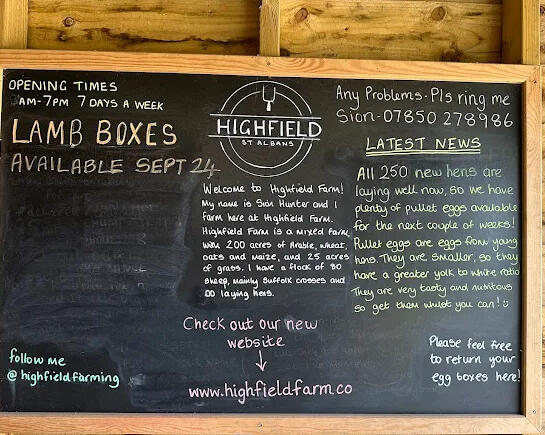 OPENING TIMES
AM-7PM 7 DAYS A WEEK
LAMB BOXES
AVAILABLE SEPT 24
HIGHFIELD
ST ALBANS
Any Problems. Pls ring me
Sion-07850 278986
LATEST NEWS
Welcome to Highfield Farm!
My name is Sion Hunter and I
farm here at Highfield Farm.
Highfield Farm is a mixed farm,
with 200 acres of Arable, wheat,
oats and maize, and 25 acres
of grass. I have a flock of
sheep, mainly Suffolk crosses and
laying hens.
All 250 new hens are
laying well now, so we have
plenty of pullet eggs available
for the next couple of weeks!
Pullet eggs are eggs from young
hens. They are smaller, so they
have a greater yolk to white ratio
They are very tasty and nutritious
so get them whilst you can!
Check out our new
website
www.highfieldfarm.co
follow me
@highfieldfarming
Please feel free
to return your
egg boxes here!